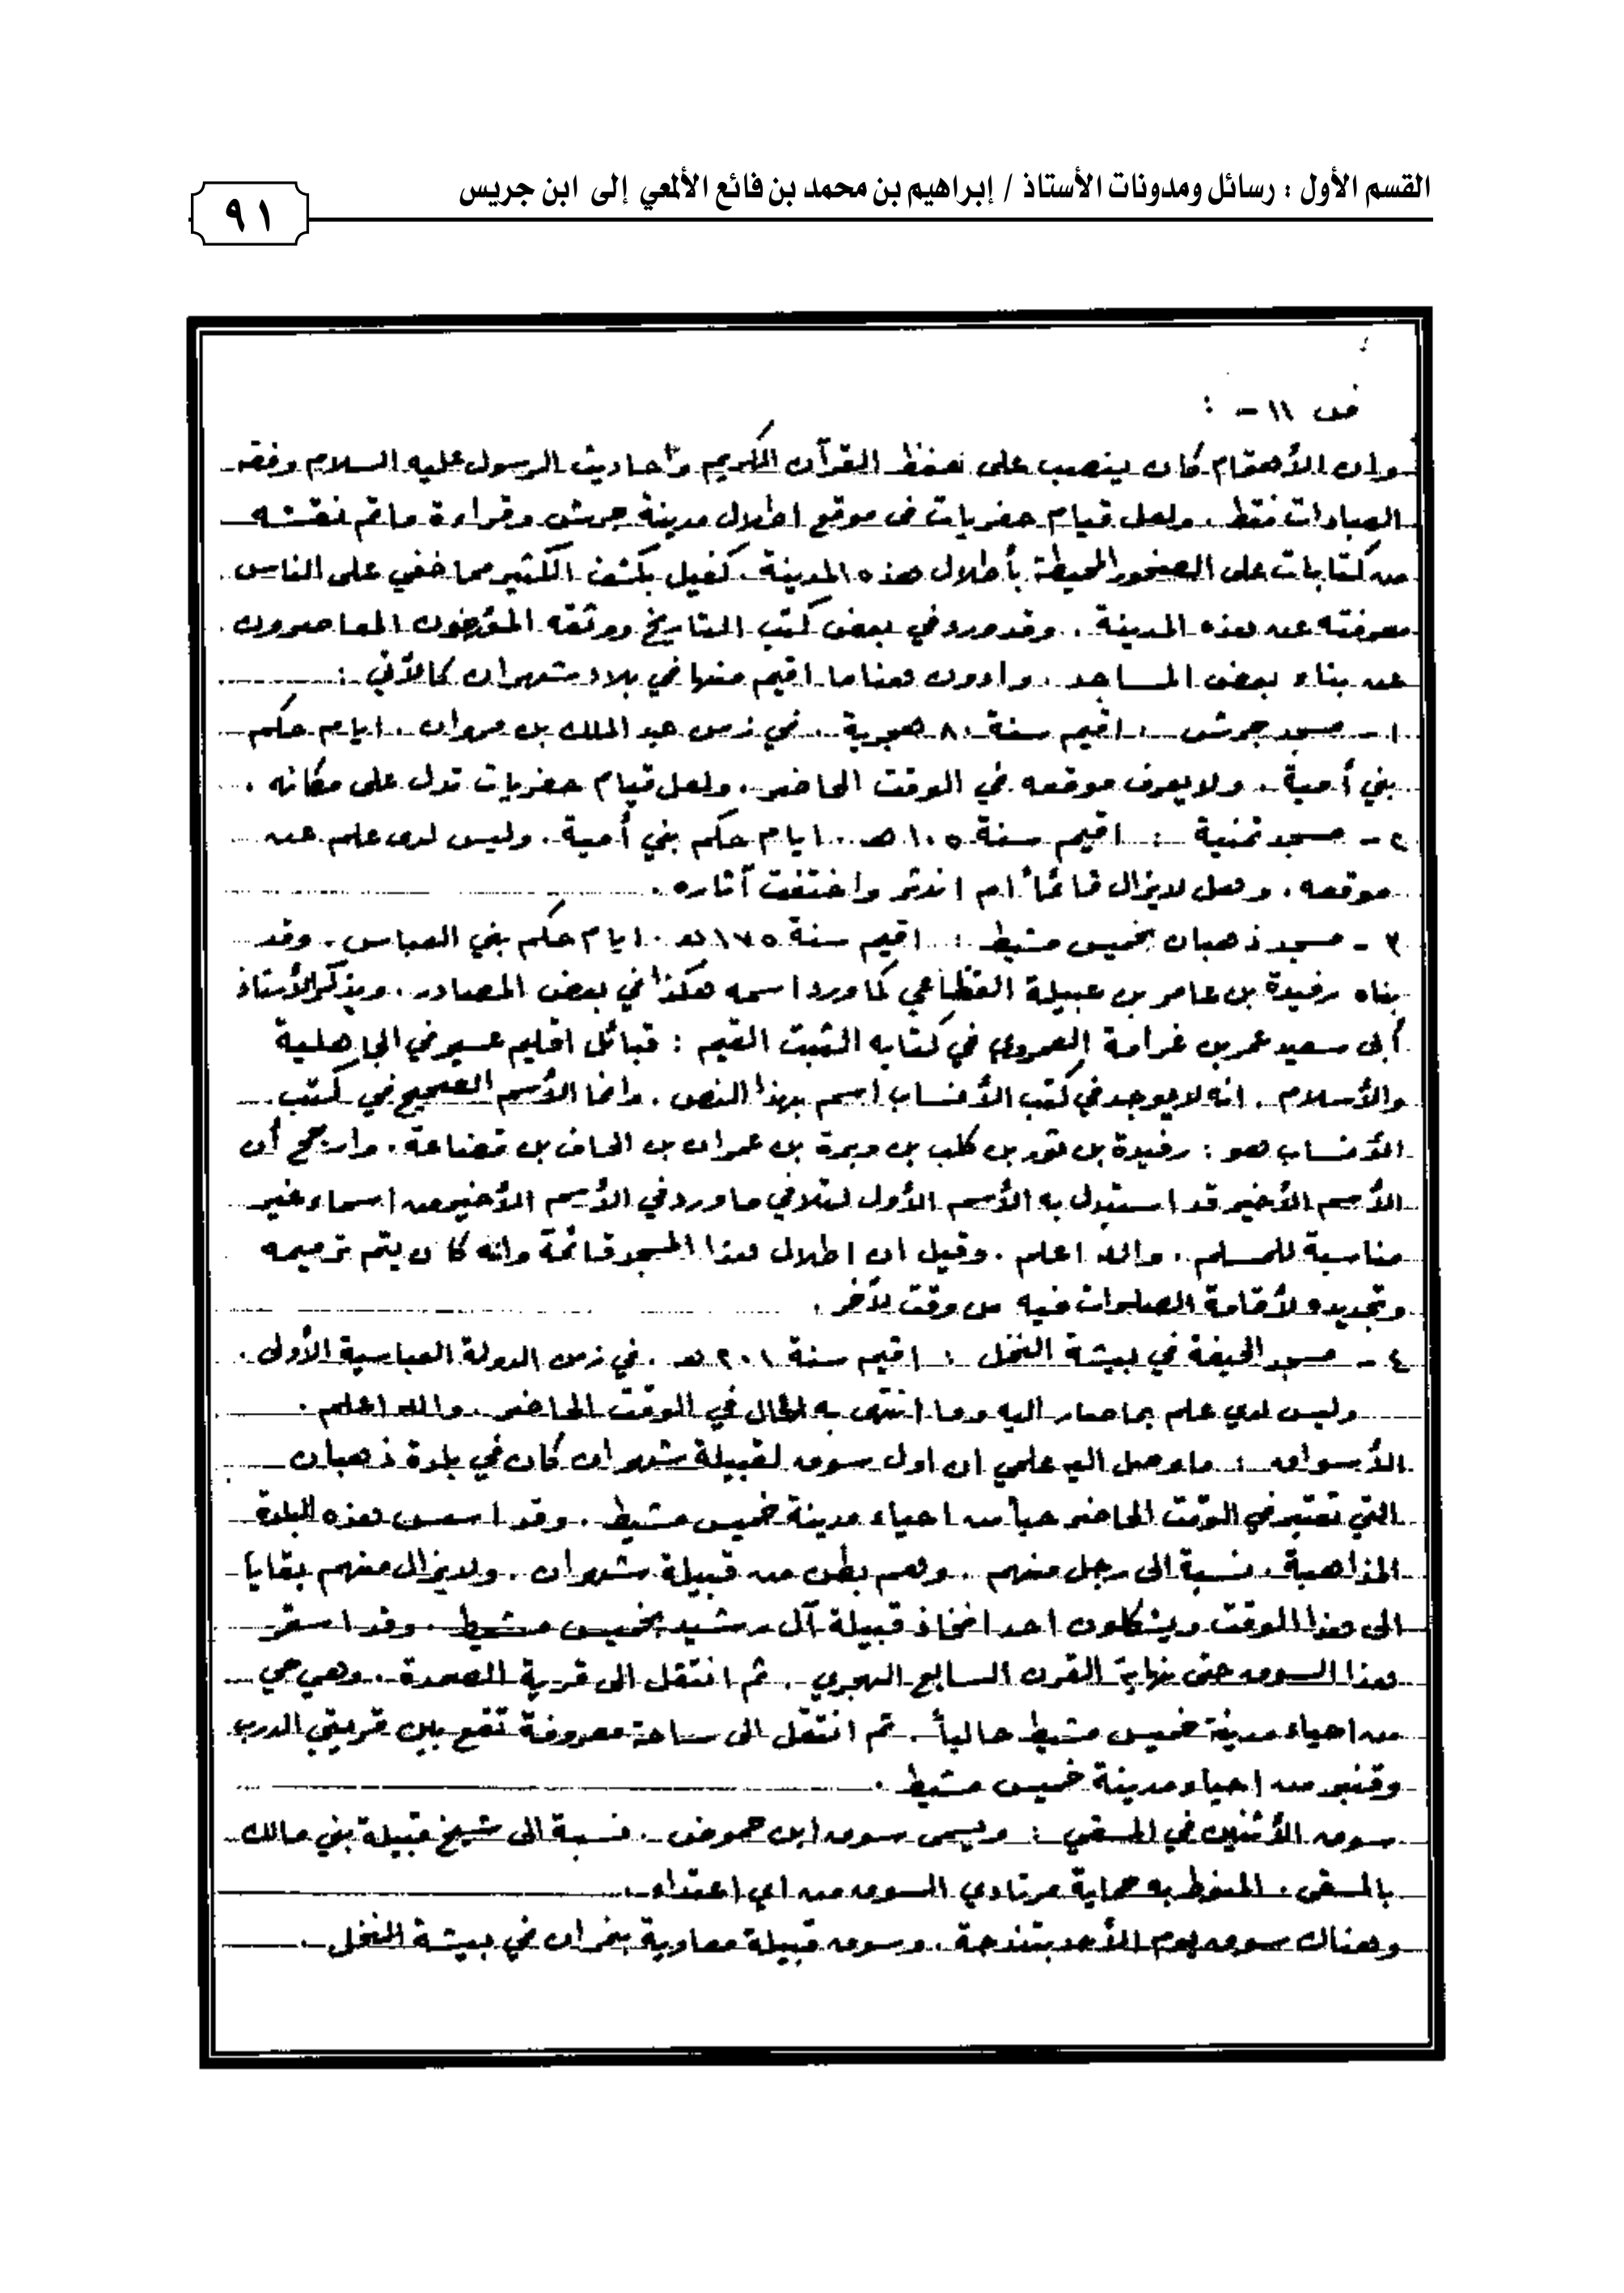 القسم الأول : رسائل ومدونات الأستاذ / إبراهيم بن محمد بن فائع الألمعي إلى ابن جريس
٩١
ص ١١ - :
وان الأهتمام كان ينصب على حفظ القرآن الكريم وأحاديث الرسول عليه السلام وفقه
العبادات فقط . ولعل قيام حفريات في موقع اطلال مدينة جرش وقراءة ماتم نقشه
من كتابات على الصخور المحيطة بأطلال هذه المدينة كفيل بكشف الكثير مما خفي على الناس
معرفته عن هذه المدينة . وقد ورد في بعض كتب التاريخ ووثقه المؤرخون المعاصرون
عن بناء بعض المساجد . وادون هنا ما اقيم منها في بلاد شهران كالآتي :
١ - مسجد جرش : اقيم سنة ٨٠ هجرية . في زمن عبد الملك بن مروان . ايام حكم
بني أمية . ولا يعرف موقعه في الوقت الحاضر . ولعل قيام حفريات تدل على مكانه .
٢ - مسجد تمنية : اقيم سنة ١٠٥ هـ . ايام حكم بني أمية . وليس لدى علم عن
موقعه . وهل لايزال قائماً أم اندثر واختفت آثاره .
٣ - مسجد ذهبان بخميس مشيط : اقيم سنة ١٧٥ هـ . ايام حكم بني العباس . وقد
بناه رفيدة بن عامر بن عبيلة القظاعي كما ورد اسمه هكذا في بعض المصادر . ويذكر الأستاذ
أبى سعيد عمر بن غرامة العمروي في كتابه الثبت القيم : قبائل اقليم عسير في الجاهلية
والأسلام . انه لايوجد في كتب الأنساب اسم بهذا النص . وانما الأسم الصحيح في كتب
الأنساب هو : رفيدة بن ثور بن كلب بن وبرة بن عمران بن الحاف بن قضاعة . وارجح أن
الأسم الأخير قد استبدل به الأسم الأول لتلافي ما ورد في الأسم الأخير من اسماء غير
مناسبة للمسلم . والله اعلم . وقيل ان اطلال هذا المسجد قائمة وانه كان يتم ترميمه
وتجديده لأقامة الصلوات فيه من وقت لآخر .
٤ - مسجد الحيفة في بيشة النخل : اقيم سنة ٢٠١ هـ . في زمن الدولة العباسية الأولى .
وليس لدي علم بما صار اليه وما انتهى به الحال في الوقت الحاضر . والله اعلم .
الأسواق : ما وصل اليه علمي ان اول سوق لقبيلة شهران كان في بلدة ذهبان
التي تعتبر في الوقت الحاضر حياً من احياء مدينة خميس مشيط . وقد اسس هذه البلدة
المذاهبة . نسبة الى رجل منهم . وهم بطن من قبيلة شهران . ولايزال منهم بقايا
الى هذا الوقت ويشكلون احد افخاذ قبيلة آل رشيد بخميس مشيط . وقد استمر
هذا السوق حتى نهاية القرن السابع الهجري . ثم انتقل الى قرية الصمدة . وهي حي
من احياء مدينة خميس مشيط حالياً . ثم انتقل الى ساحة معروفة تقع بين قريتي الدرب
وقنبر من احياء مدينة خميس مشيط .
سوق الأثنين في المسقي : ويسمى سوق ابن حموض . نسبة الى شيخ قبيلة بني مالك
بالمسقى . المنوط به حماية مرتادي السوق من اي اعتداء .
وهناك سوق يوم الأحد بتندحة . وسوق قبيلة معاوية بنمران في بيشة النخل .